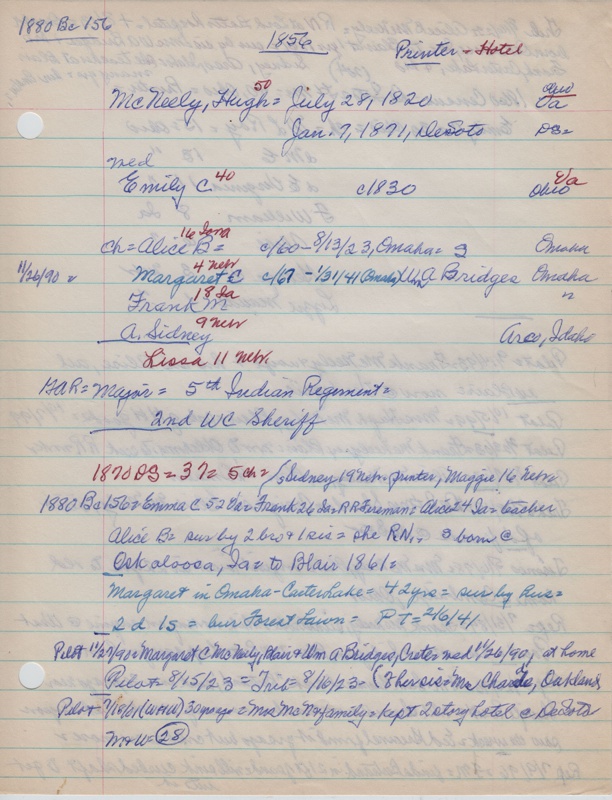 1880 Bc 156
1856
Printer - Hotel
McNeely, Hugh = 50 July 28, 1820 Ohio Va
Jan. 7, 1871, DeSoto DS=
med
Emily C 40 c1830 Ohio Va
ch = Alice B = 16 Iowa c/60 - 8/13/23, Omaha = S Omaha
11/26/90 Margaret C 4 Nebr c/67 - 1/31/41 (Omaha) Wm A Bridges Omaha
Frank M 18 Ia "
A. Sidney 9 Nebr Arco, Idaho
Lissa 11 Nebr.
GAR = Major = 5th Indian Regement =
2nd WC Sheriff
1870 DS = 37 = 5 ch = / Sidney 19 Nebr-printer, Maggie 16 Nebr
1880 Bc 156 = Emma C 52 Va = Frank 26 Ia = RR Foreman = Alice 24 Ia = teacher
Alice B = sur by 2 bro + 1 sis = she RN, born @
Oskaloosa, Ia = to Blair 1861 =
Margaret in Omaha - Carter Lake = 42 yrs = sur by hus =
2 d 1 s = bur Forest Lawn = PT = 2/6/41
Pilot 11/27/90 = Margaret C McNeely, Blair & Wm A Bridges, Crete, med 11/26/90, at home
Pilot 8/15/23 = Trib = 8/16/23 = (Her sis = Mrs Oakland
Pilot 7/19/61 (W+W) 30 yrs ago = Mrs McN & family = kept 2 story hotel @ DeSoto
M+W = 28